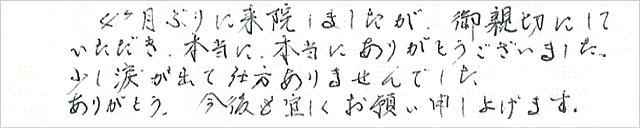 月ぶりに来院しましたが、御親切にして
いただき、本当に、本当にありがとうございました。
少し涙が出て仕方ありませんでした
ありがとう。今後も宜しくお願い申し上げます。